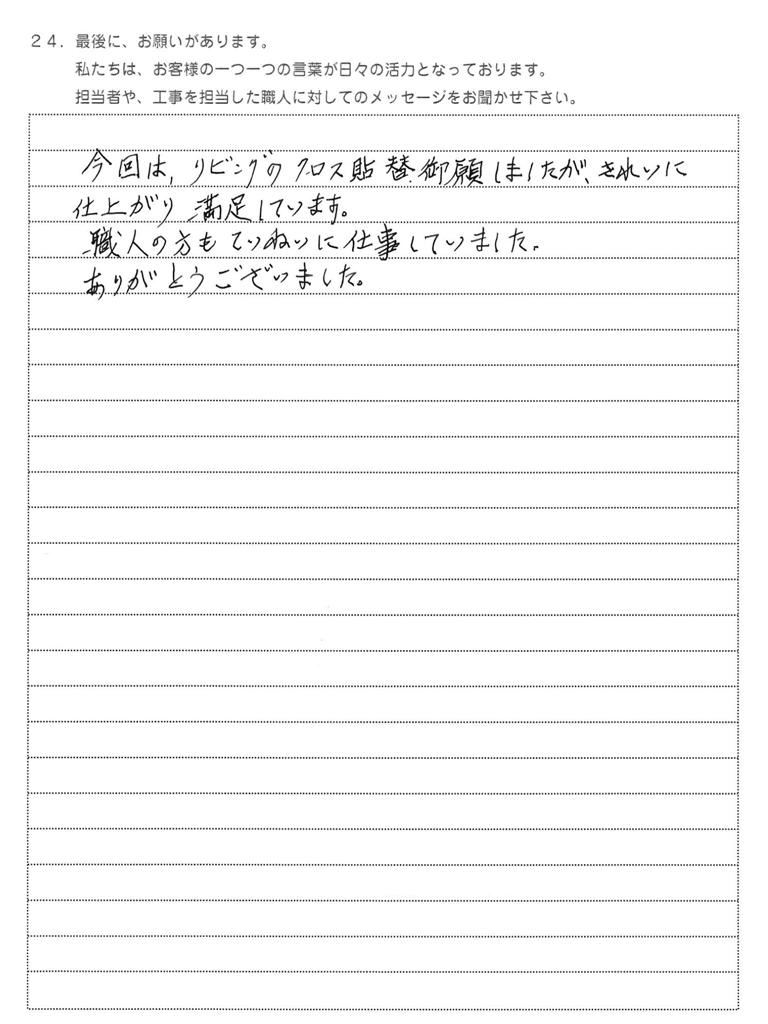 24．最後に、お願いがあります。
私たちは、お客様の一つ一つの言葉が日々の活力となっております。
担当者や、工事を担当した職人に対してのメッセージをお聞かせ下さい。
今回は，リビングのクロス貼替御願しましたが、きれいに
仕上がり満足しています。
職人の方もていねいに仕事していました。
ありがとうございました。